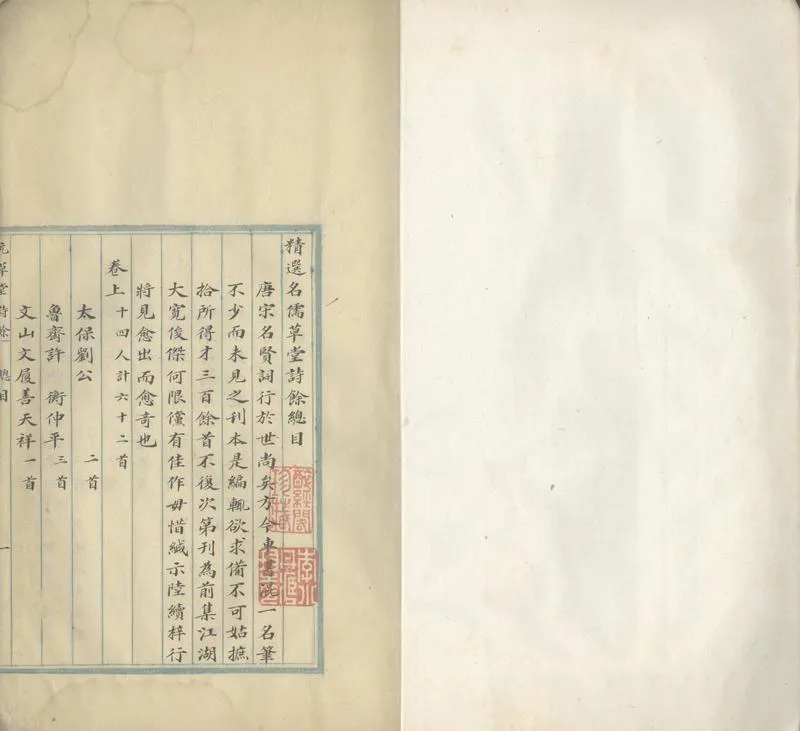 精選名儒草堂詩餘總目
唐宋名賢詞行於世尚矣方今車書混一名筆
不少而未見之刊本是編輒欲求備不可姑摭
拾所得才三百餘首不復次第刊為前集江湖
大寛俊傑何限儻有佳作毋惜緘示陸續梓行
將見愈出而愈奇也
卷上十四人計六十二首
太保劉公 二首
魯齋許 衡仲平三首
文山文履善天祥一首
元草堂詩餘 總目 一